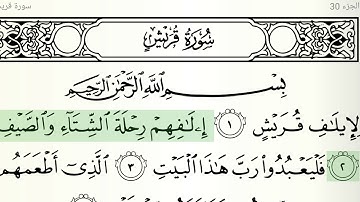 الجزء 30 سورة قريش
سُورَةُ قُرَيْشٍ
بِسْمِ اللَّهِ الرَّحْمَٰنِ الرَّحِيمِ
لِإِيلَٰفِ قُرَيْشٍ ١ إِۦلَٰفِهِمْ رِحْلَةَ الشِّتَآءِ وَالصَّيْفِ
٢ فَلْيَعْبُدُوا۟ رَبَّ هَٰذَا الْبَيْتِ ٣ الَّذِىٓ أَطْعَمَهُم